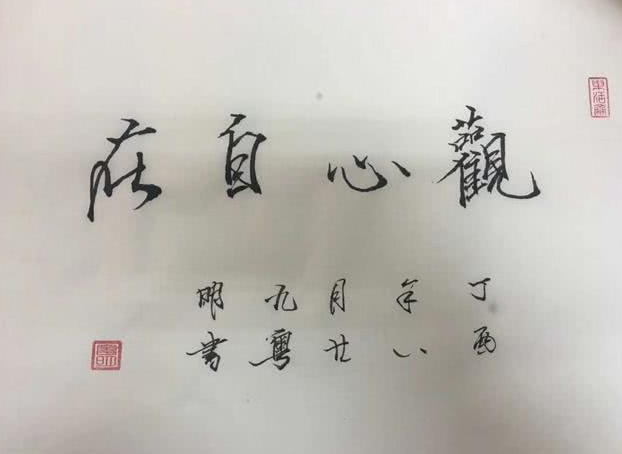 觀心自在
丁酉
年八
月廿
九粵
明書